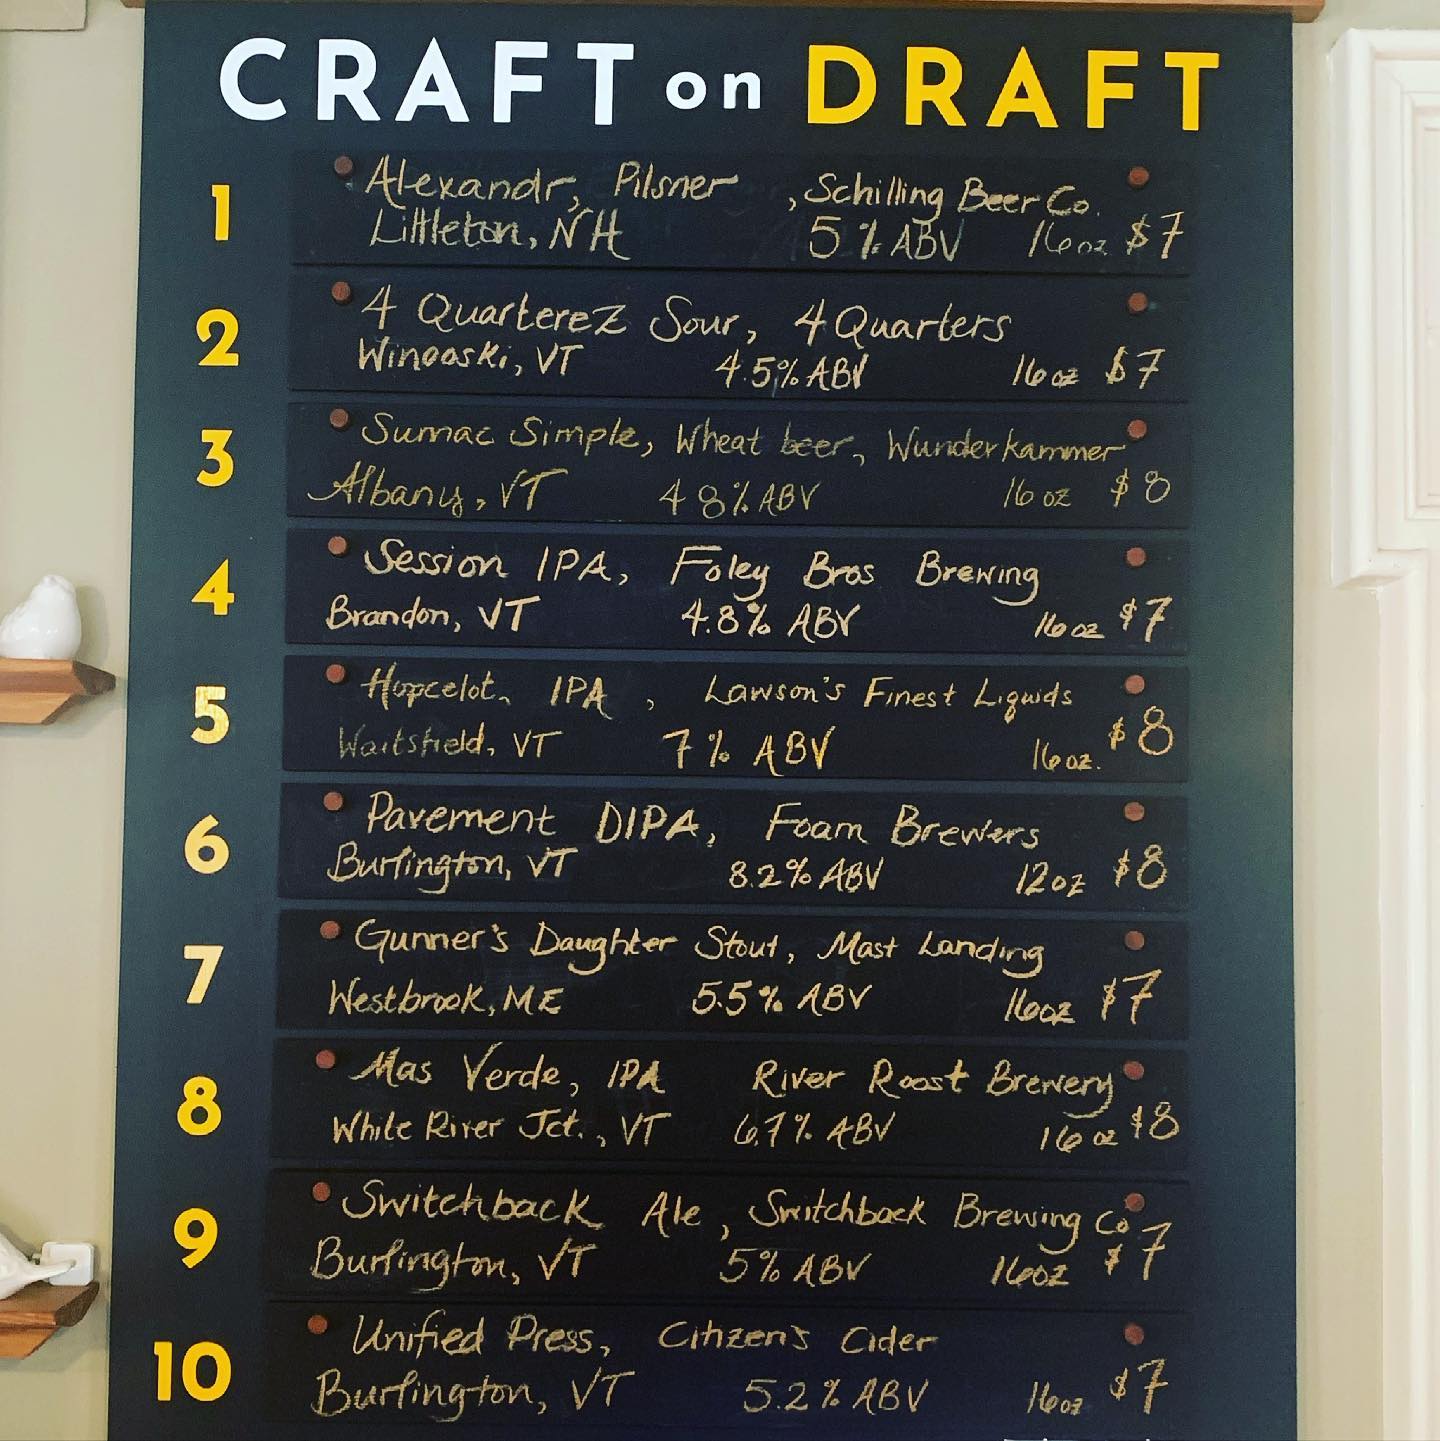 CRAFT on DRAFT
1
Alexandr, Pilsner , Schilling Beer Co.
Littleton, NH 5% ABV 16oz $7
2
4 Quarterez Sour, 4 Quarters
Winooski, VT 4.5% ABV 16oz $7
3
Sumac Simple, Wheat beer, Wunderkammer
Albany, VT 4 8% ABV 16 oz $8
4
Session IPA, Foley Bros Brewing
Brandon, VT 4.8% ABV 16oz $7
5
Hopcelot, IPA , Lawson's Finest Liquids
Waitsfield, VT 7% ABV 16oz. $8
6
Pavement DIPA, Foam Brewers
Burlington, VT 8.2% ABV 12oz $8
7
Gunner's Daughter Stout, Mast Landing
Westbrook, ME 5.5% ABV 16oz $7
8
Mas Verde, IPA River Roost Brewery
White River Jct., VT 6.7% ABV 16oz $8
9
Switchback Ale, Switchback Brewing Co
Burlington, VT 5% ABV 16oz $7
10
Unified Press, Citizen's Cider
Burlington, VT 5.2% ABV 16oz $7